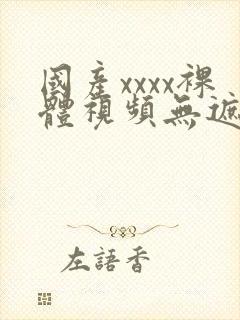 國產xxxx裸
體視頻無遮
左語香